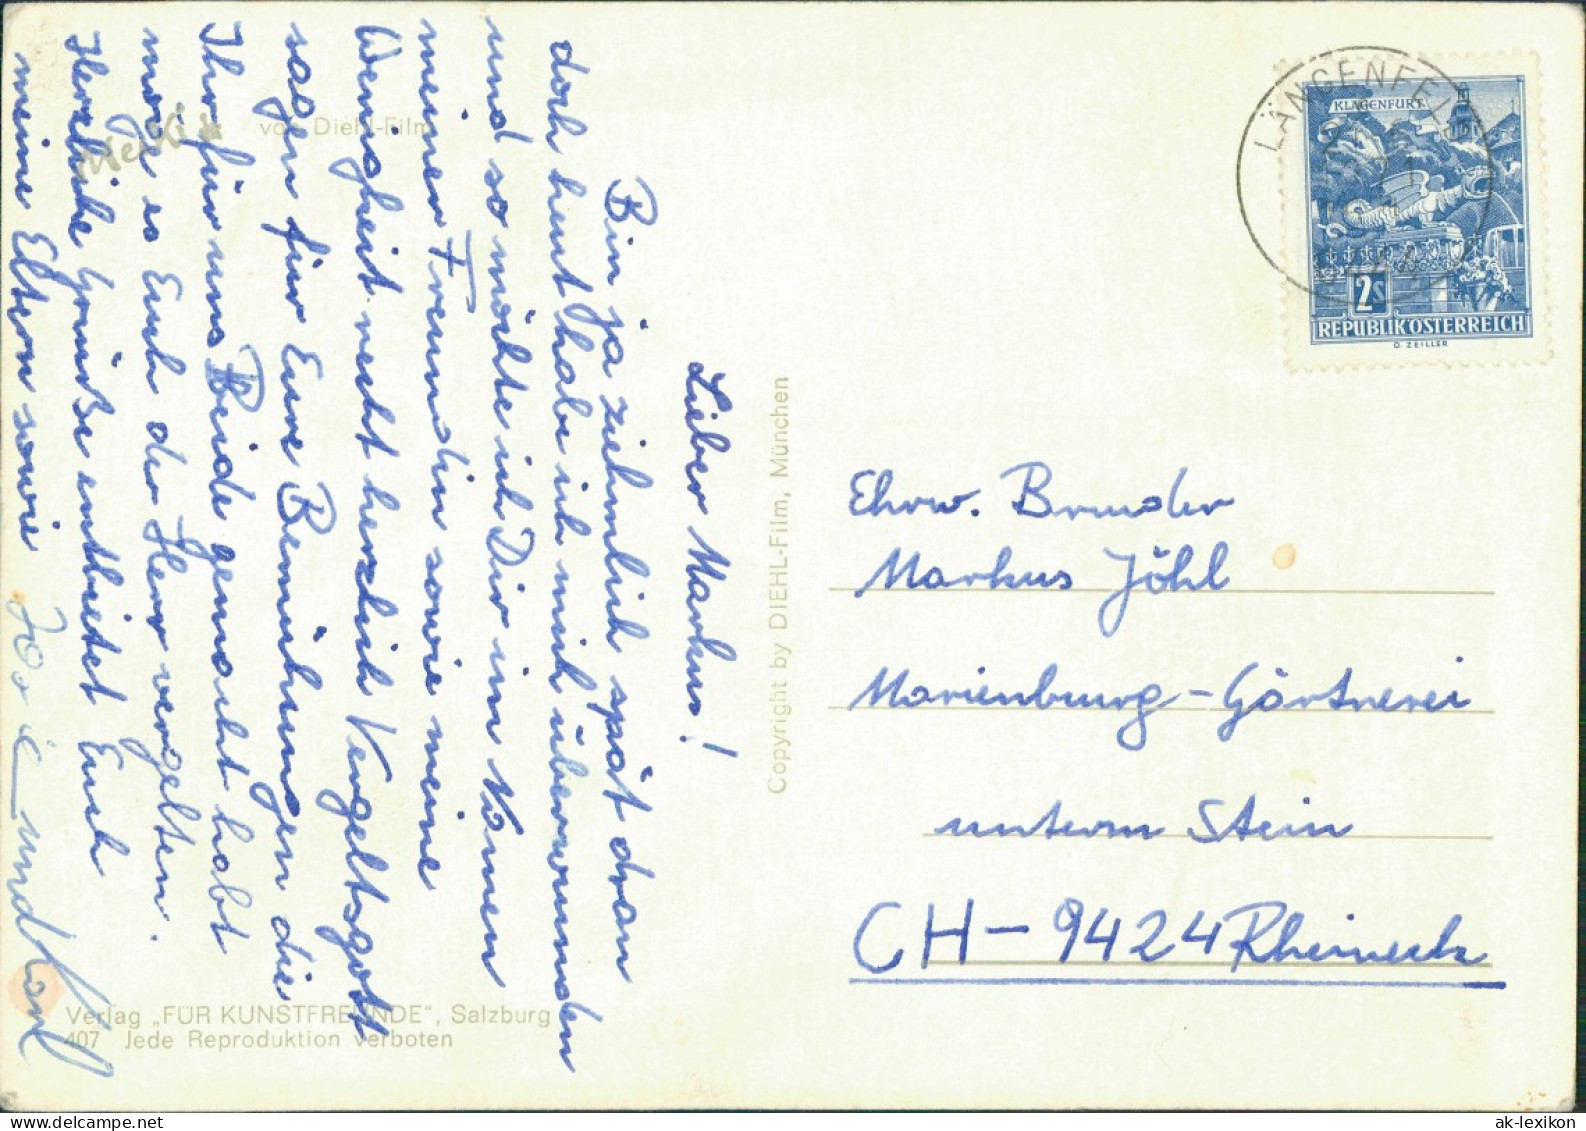 Lieber Markus!
Bin ja ziehmlich spät dran
doch heut habe ich mich überwunden
und so möchte ich Dir im Namen
meiner Freundin sowie meine
Wenigheit recht herzlich Vergeltsgott
sagen für Eure Bemühungen die
Ihr für uns Beide gemacht habt
möge es Euch der Herr vergelten.
Herzliche Grüße entbietet Euch
meine Eltern sowie
und Karl
von Diehl-Film
Verlag „FÜR KUNSTFREUNDE“, Salzburg
407 Jede Reproduktion verboten
Copyright by DIEHL-Film, München
LÄNGENFELD
KLAGENFURT
2S
REPUBLIK ÖSTERREICH
O. ZEILLER
Ehrw. Bruder
Markus Jöhl
Marienburg-Gärtnerei
unterm Stein
CH-9424 Rheineck
ak-lexikon.com